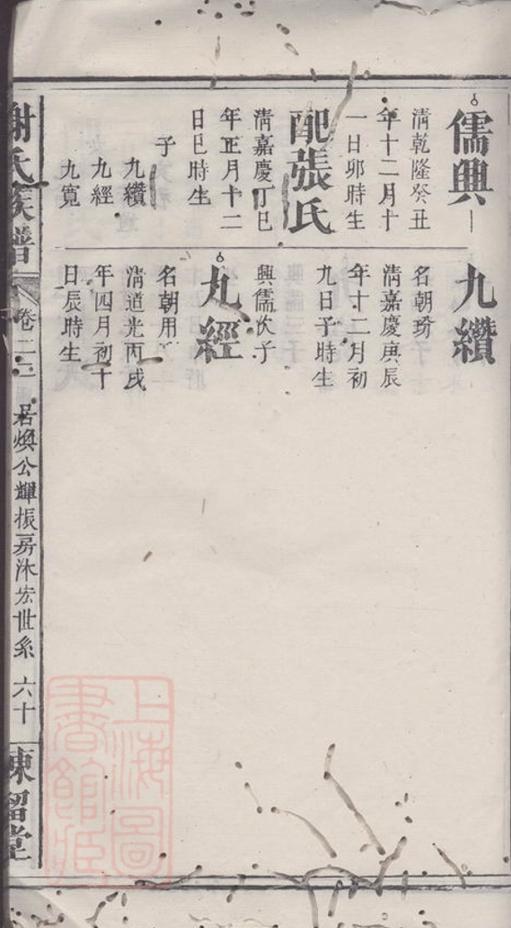 儒興
清乾隆癸丑
年十二月十
一日卯時生
配張氏
清嘉慶丁巳
年正月十二
日巳時生
子
九纘
九經
九寬
九纘
名朝
清嘉慶庚辰
年十二月初
九日子時生
興儒次子
九經
名朝用
清道光丙戌
年四月初十
日辰時生
謝氏族譜
卷二二
君煥公輝振房沐宏世系
六十
陳留堂
上海圖
書館藏